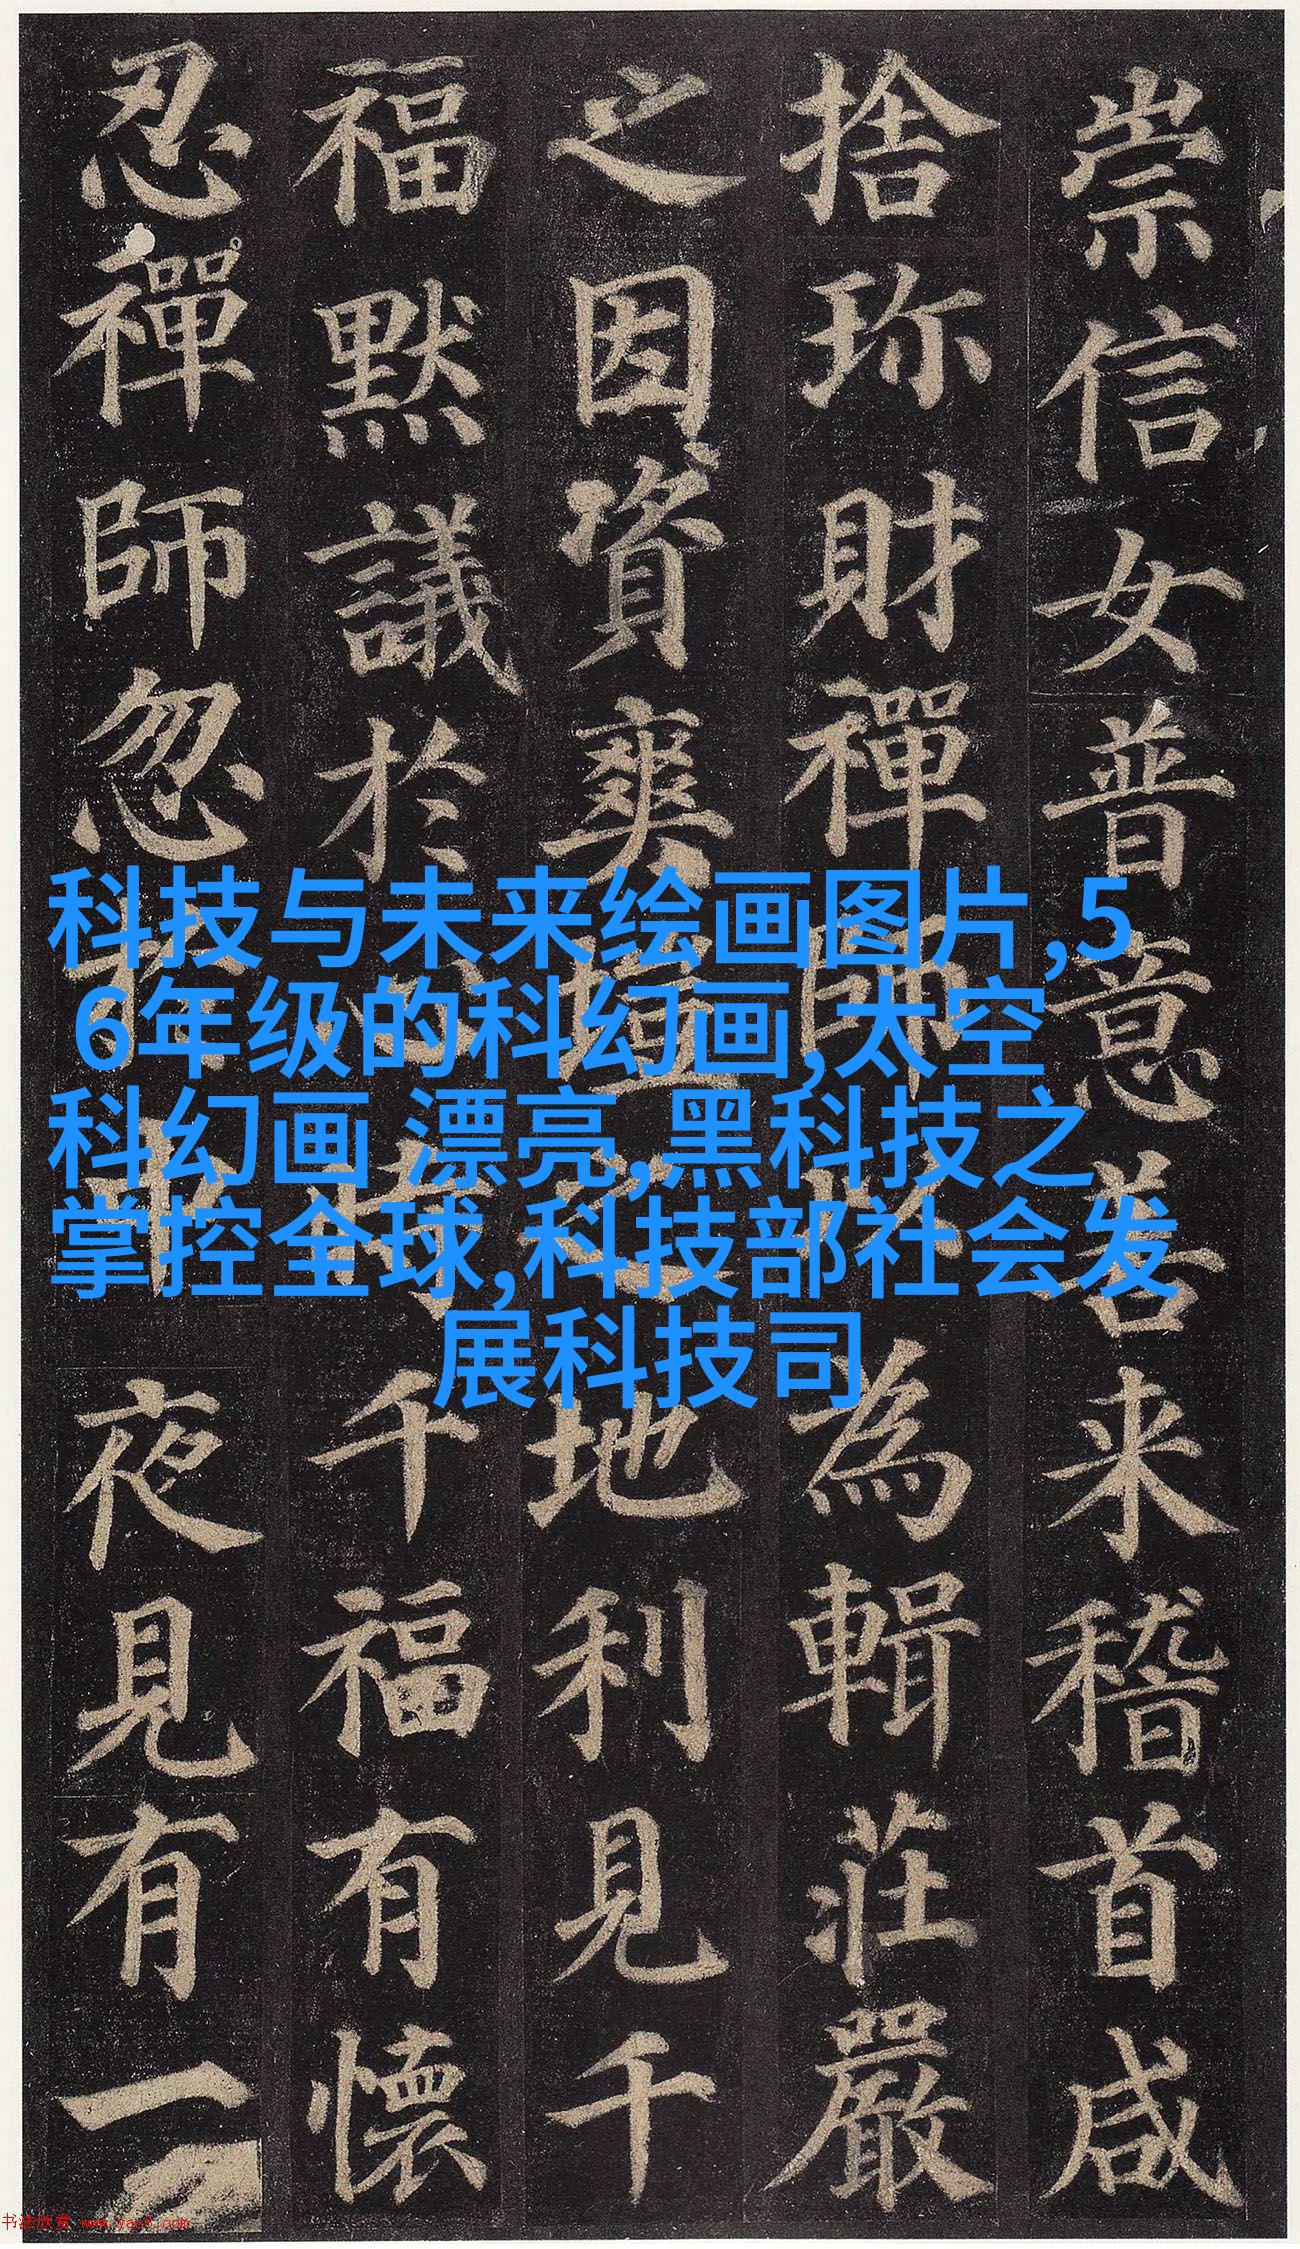 崇信女普意善来稽首咸
捨珎財禪師以為輯莊嚴
之因資爽塏之地利見千
福默議於心時千福有懷
忍禪師忽於中夜見有一
科技与未来绘画图片,5
6年级的科幻画,太空
科幻画 漂亮,黑科技之
掌控全球,科技部社会发
展科技司
书法欣赏 www.yac8.com